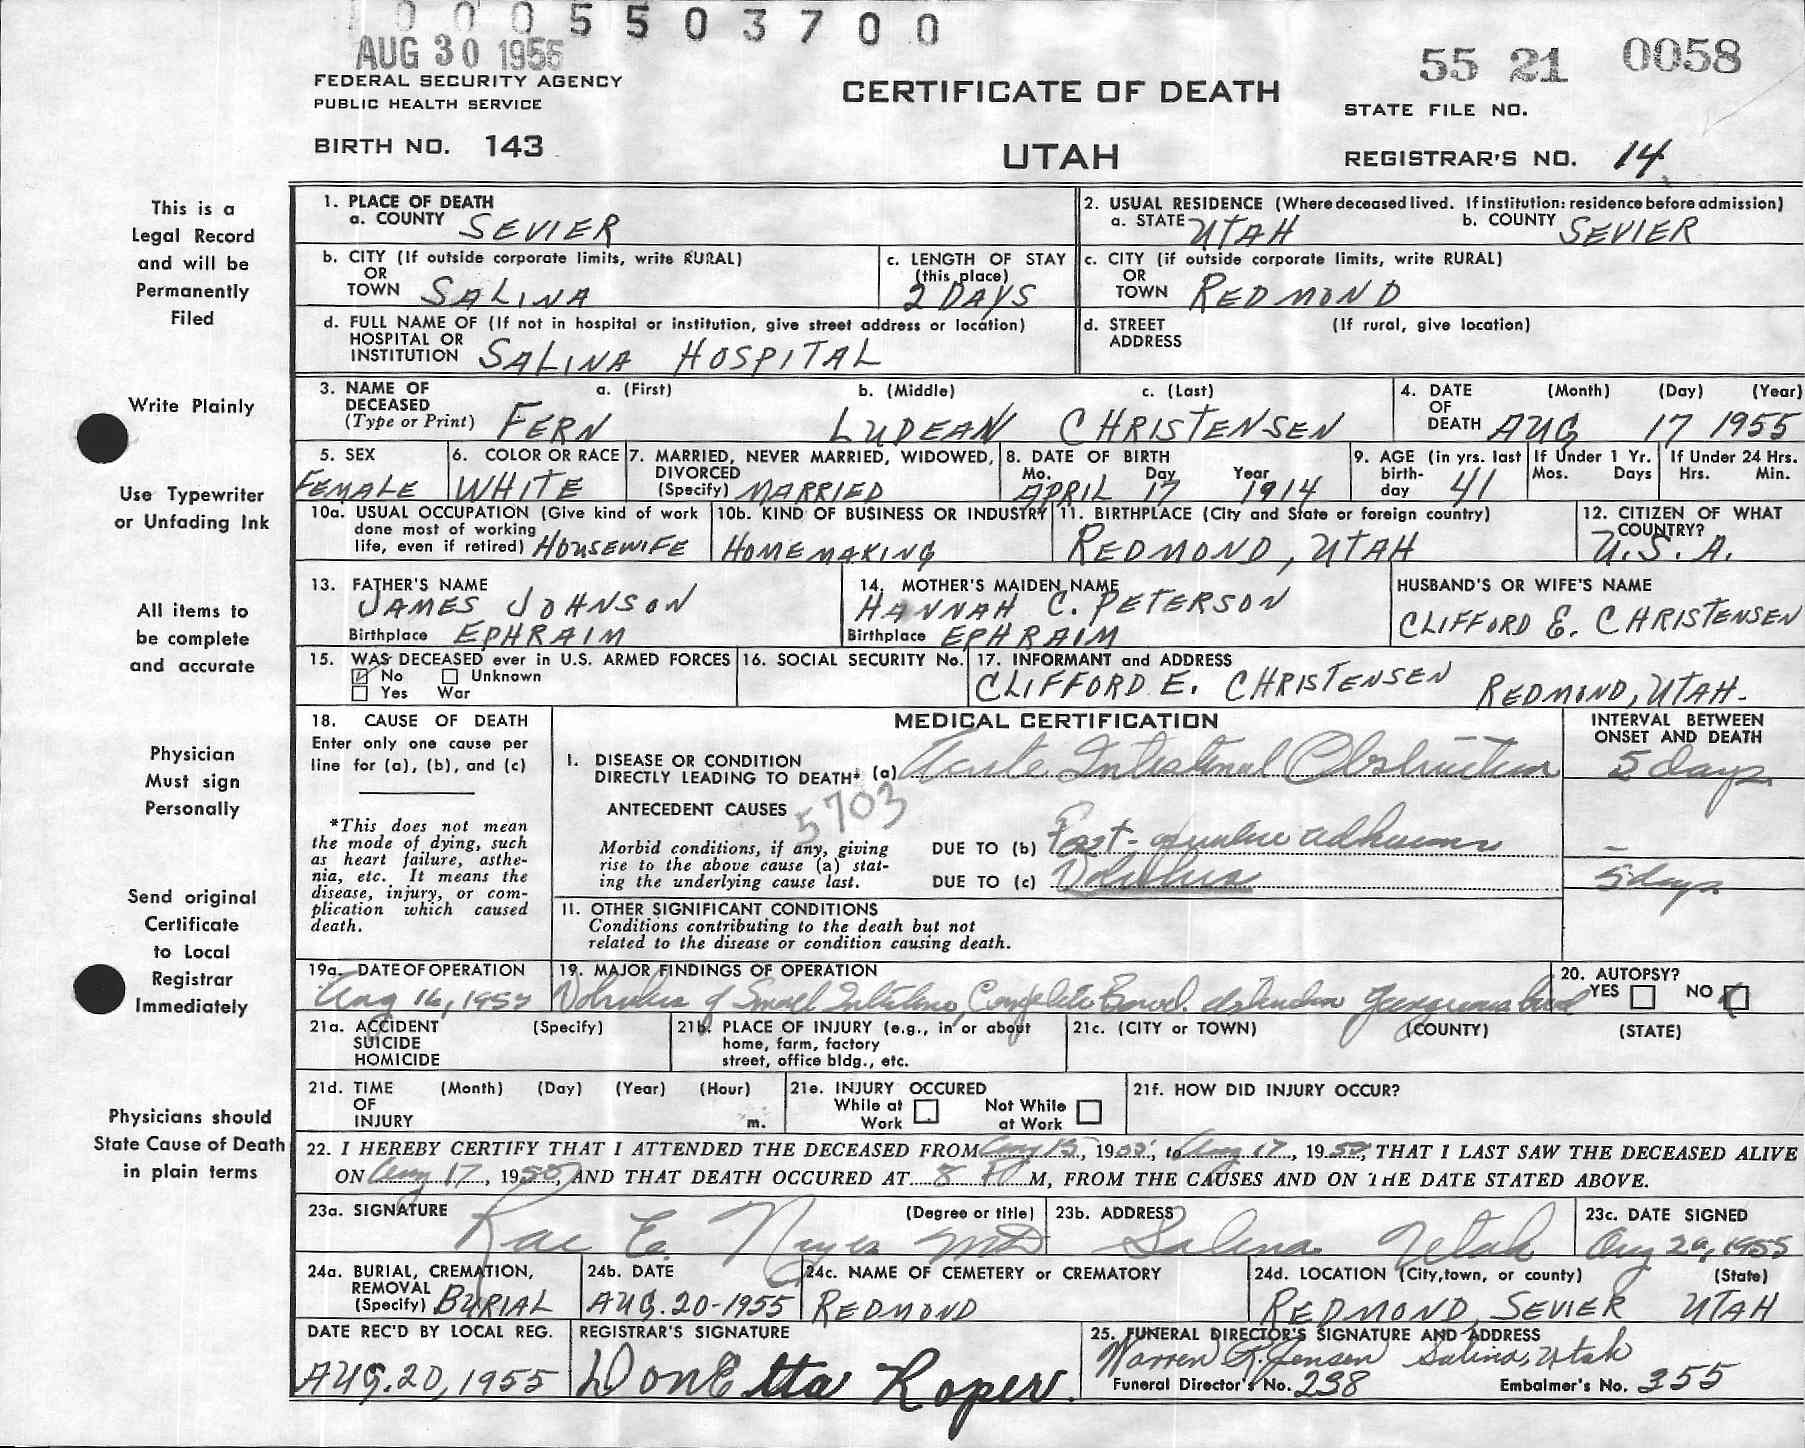 0 0 0 5 5 0 3 7 0 0
AUG 30 1955
55 21 0058
FEDERAL SECURITY AGENCY
PUBLIC HEALTH SERVICE
CERTIFICATE OF DEATH
STATE FILE NO.
BIRTH NO. 143
UTAH
REGISTRAR'S NO. 14
This is a
Legal Record
and will be
Permanently
Filed
Write Plainly
Use Typewriter
or Unfading Ink
All items to
be complete
and accurate
Physician
Must sign
Personally
Send original
Certificate
to Local
Registrar
Immediately
Physicians should
State Cause of Death
in plain terms
1. PLACE OF DEATH
a. COUNTY SEVIER
2. USUAL RESIDENCE (Where deceased lived. If institution: residence before admission)
a. STATE UTAH b. COUNTY SEVIER
b. CITY (If outside corporate limits, write RURAL)
OR
TOWN SALINA
c. LENGTH OF STAY
(this place)
2 DAYS
c. CITY (if outside corporate limits, write RURAL)
OR
TOWN REDMOND
d. FULL NAME OF (If not in hospital or institution, give street address or location)
HOSPITAL OR
INSTITUTION SALINA HOSPITAL
d. STREET (If rural, give location)
ADDRESS
3. NAME OF a. (First) b. (Middle) c. (Last)
DECEASED
(Type or Print) FERN LUDEAN CHRISTENSEN
4. DATE (Month) (Day) (Year)
OF
DEATH AUG 17 1955
5. SEX
FEMALE
6. COLOR OR RACE
WHITE
7. MARRIED, NEVER MARRIED, WIDOWED,
DIVORCED
(Specify) MARRIED
8. DATE OF BIRTH
Mo. Day Year
APRIL 17 1914
9. AGE (in yrs. last
birth-
day 41
If Under 1 Yr.
Mos. Days
If Under 24 Hrs.
Hrs. Min.
10a. USUAL OCCUPATION (Give kind of work
done most of working
life, even if retired) HOUSEWIFE
10b. KIND OF BUSINESS OR INDUSTRY
HOMEMAKING
11. BIRTHPLACE (City and State or foreign country)
REDMOND, UTAH
12. CITIZEN OF WHAT
COUNTRY?
U.S.A.
13. FATHER'S NAME
JAMES JOHNSON
Birthplace EPHRAIM
14. MOTHER'S MAIDEN NAME
HANNAH C. PETERSON
Birthplace EPHRAIM
HUSBAND'S OR WIFE'S NAME
CLIFFORD E. CHRISTENSEN
15. WAS DECEASED ever in U.S. ARMED FORCES
No Unknown
Yes War
16. SOCIAL SECURITY No.
17. INFORMANT and ADDRESS
CLIFFORD E. CHRISTENSEN REDMOND, UTAH-
18. CAUSE OF DEATH
Enter only one cause per
line for (a), (b), and (c)
*This does not mean
the mode of dying, such
as heart failure, asthe-
nia, etc. It means the
disease, injury, or com-
plication which caused
death.
MEDICAL CERTIFICATION
INTERVAL BETWEEN
ONSET AND DEATH
I. DISEASE OR CONDITION
DIRECTLY LEADING TO DEATH* (a) Acute Intestinal Obstruction 5 days
ANTECEDENT CAUSES 5703
Morbid conditions, if any, giving
rise to the above cause (a) stat-
ing the underlying cause last.
DUE TO (b) Post- adhesions -
DUE TO (c) Volvulus 5 days
11. OTHER SIGNIFICANT CONDITIONS
Conditions contributing to the death but not
related to the disease or condition causing death.
19a. DATE OF OPERATION
Aug 16, 1955
19. MAJOR FINDINGS OF OPERATION
Volvulus of Small Intestine, Complete Bowel distention Gangrenous bowel
20. AUTOPSY?
YES NO
21a. ACCIDENT (Specify)
SUICIDE
HOMICIDE
21b. PLACE OF INJURY (e.g., in or about
home, farm, factory
street, office bldg., etc.
21c. (CITY or TOWN) (COUNTY) (STATE)
21d. TIME (Month) (Day) (Year) (Hour)
OF
INJURY m.
21e. INJURY OCCURED
While at Not While
Work at Work
21f. HOW DID INJURY OCCUR?
22. I HEREBY CERTIFY THAT I ATTENDED THE DECEASED FROM Aug 15, 1955, to Aug 17, 1955, THAT I LAST SAW THE DECEASED ALIVE
ON Aug 17, 1955, AND THAT DEATH OCCURED AT 8 P M, FROM THE CAUSES AND ON THE DATE STATED ABOVE.
23a. SIGNATURE (Degree or title)
Rae E. Noyes MD
23b. ADDRESS
Salina Utah
23c. DATE SIGNED
Aug 20, 1955
24a. BURIAL, CREMATION,
REMOVAL
(Specify) BURIAL
24b. DATE
AUG. 20-1955
24c. NAME OF CEMETERY or CREMATORY
REDMOND
24d. LOCATION (City, town, or county) (State)
REDMOND, SEVIER UTAH
DATE REC'D BY LOCAL REG.
AUG. 20, 1955
REGISTRAR'S SIGNATURE
DonEtta Roper.
25. FUNERAL DIRECTOR'S SIGNATURE AND ADDRESS
Warren R. Jensen Salina, Utah
Funeral Director's No. 238 Embalmer's No. 355